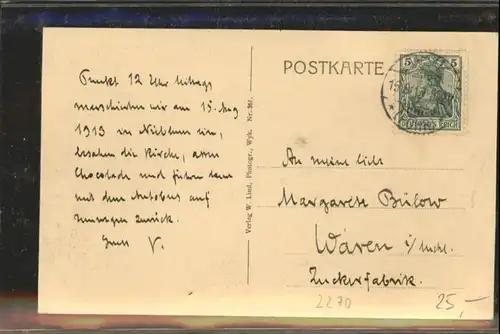 Punkt 12 Uhr Mittags
marschierten wir am 15. Aug
1913 in Nieblum ein,
besahen die Kirche, assen
Chocolade und fuhren dann
mit dem Autobus auf
zurück.
Gruss V.
Verlag W. Lind, Photogr., Wyk. Nr.
POSTKARTE
5 5
DEUTSCHES REICH
An meine liebe
Margarete Bülow
Waren i/Meckl.
Zuckerfabrik.
2270
25,-